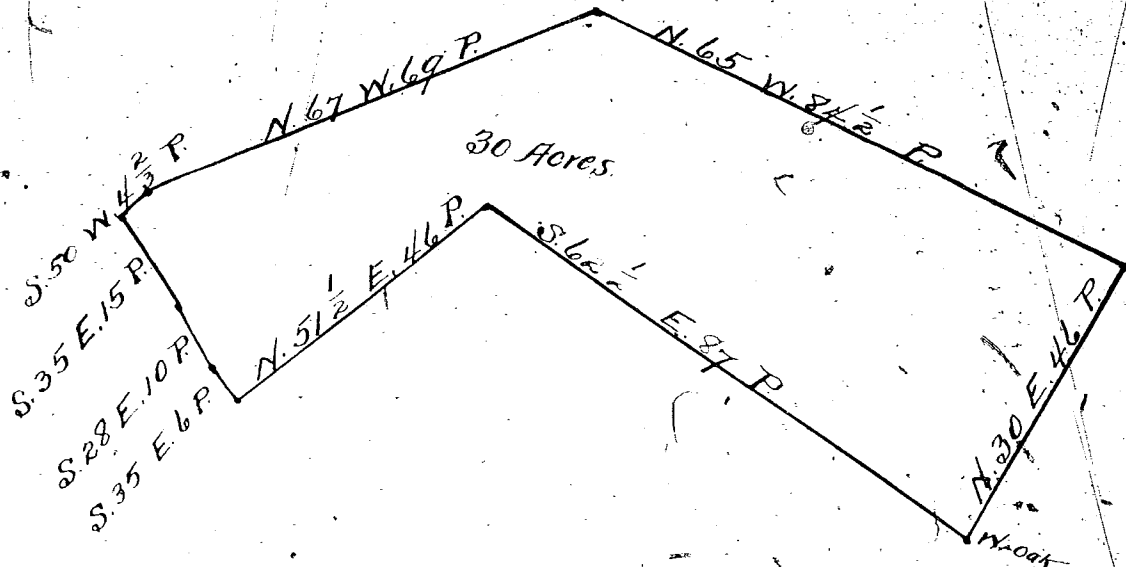 N. 67 W. 69 P.
N. 65 W. 84 1/2 P.
30 Acres.
S. 50 W 4 2/3 P.
S. 35 E. 15 P.
S. 28 E. 10 P.
S. 35 E. 6 P.
N. 51 1/2 E. 46 P.
S. 62 1/2 E. 87 P.
N. 30 E. 46 P.
W-oak